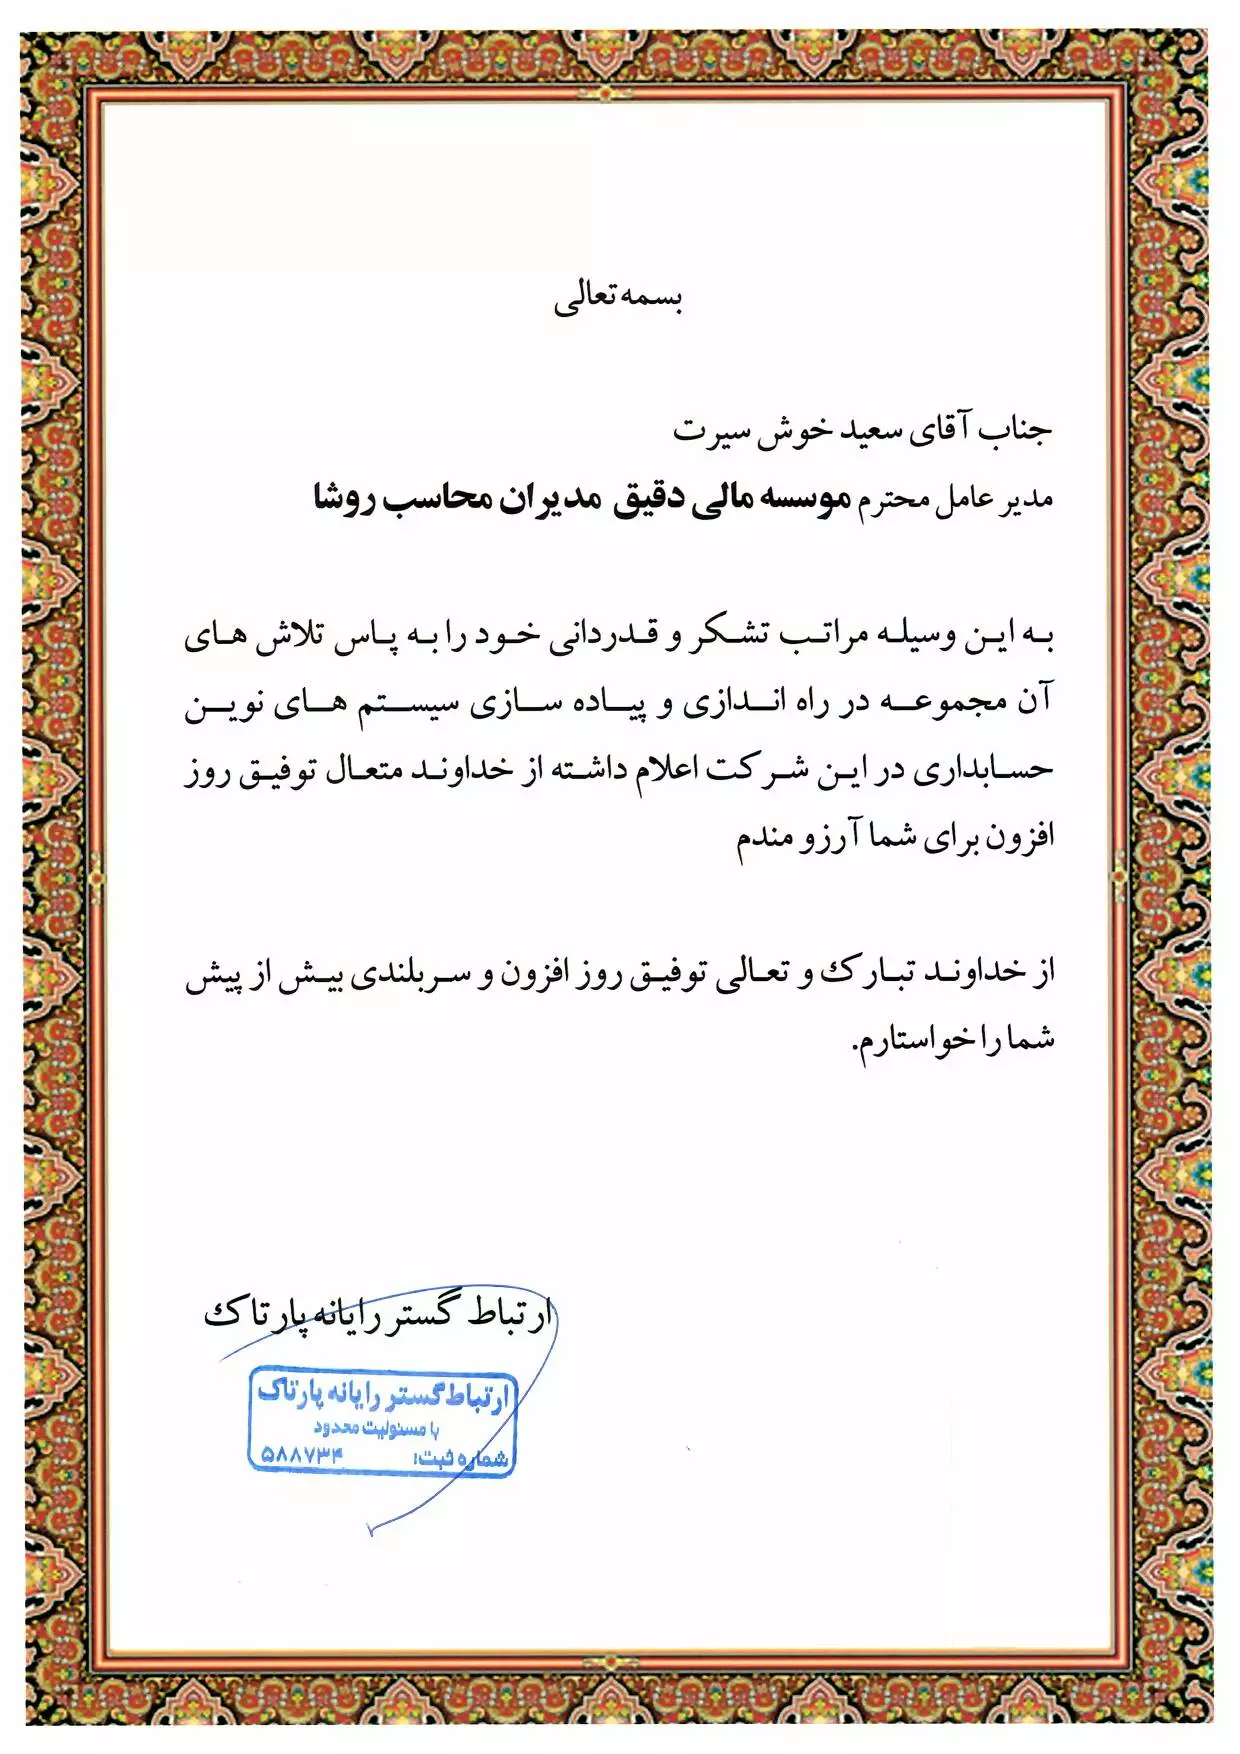 بسمه تعالی
جناب آقای سعید خوش سیرت
مدیر عامل محترم موسسه مالی دقیق مدیران محاسب روشا
به این وسیله مراتب تشکر و قدردانی خود را به پاس تلاش های
آن مجموعه در راه اندازی و پیاده سازی سیستم های نوین
حسابداری در این شرکت اعلام داشته از خداوند متعال توفیق روز
افزون برای شما آرزو مندم
از خداوند تبارک و تعالی توفیق روز افزون و سربلندی بیش از پیش
شما را خواستارم.
ارتباط گستر رایانه پارتاک
ارتباط گستر رایانه پارتاک
با مسئولیت محدود
شماره ثبت: ۵۸۸۷۳۴